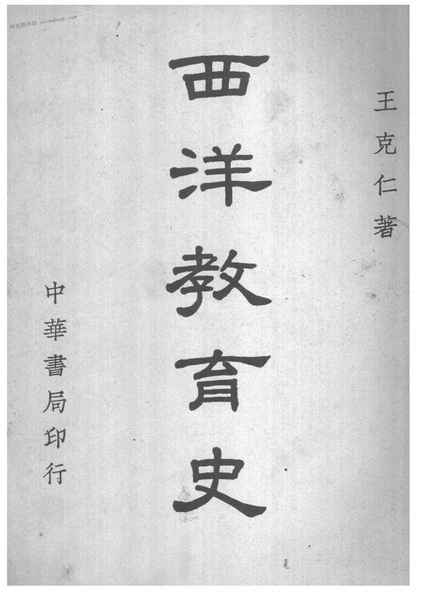 王克仁著
西洋教育史
中華書局印行